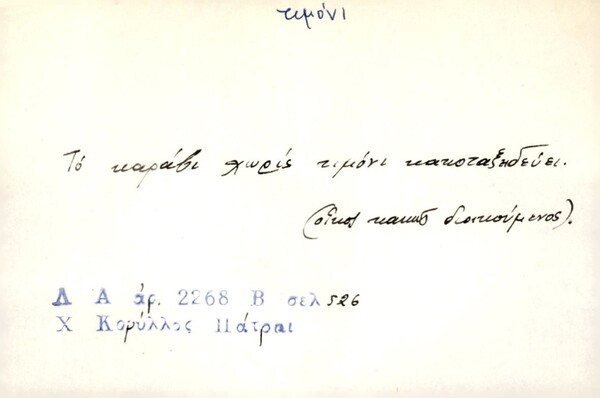 τιμόνι
Τό καράβι χωρίς τιμόνι κακοταξηδεύει.
(οἶκος κακῶς διοικούμενος).
Λ Α άρ. 2268 Β σελ 526
Χ Κορύλλος Πάτραι